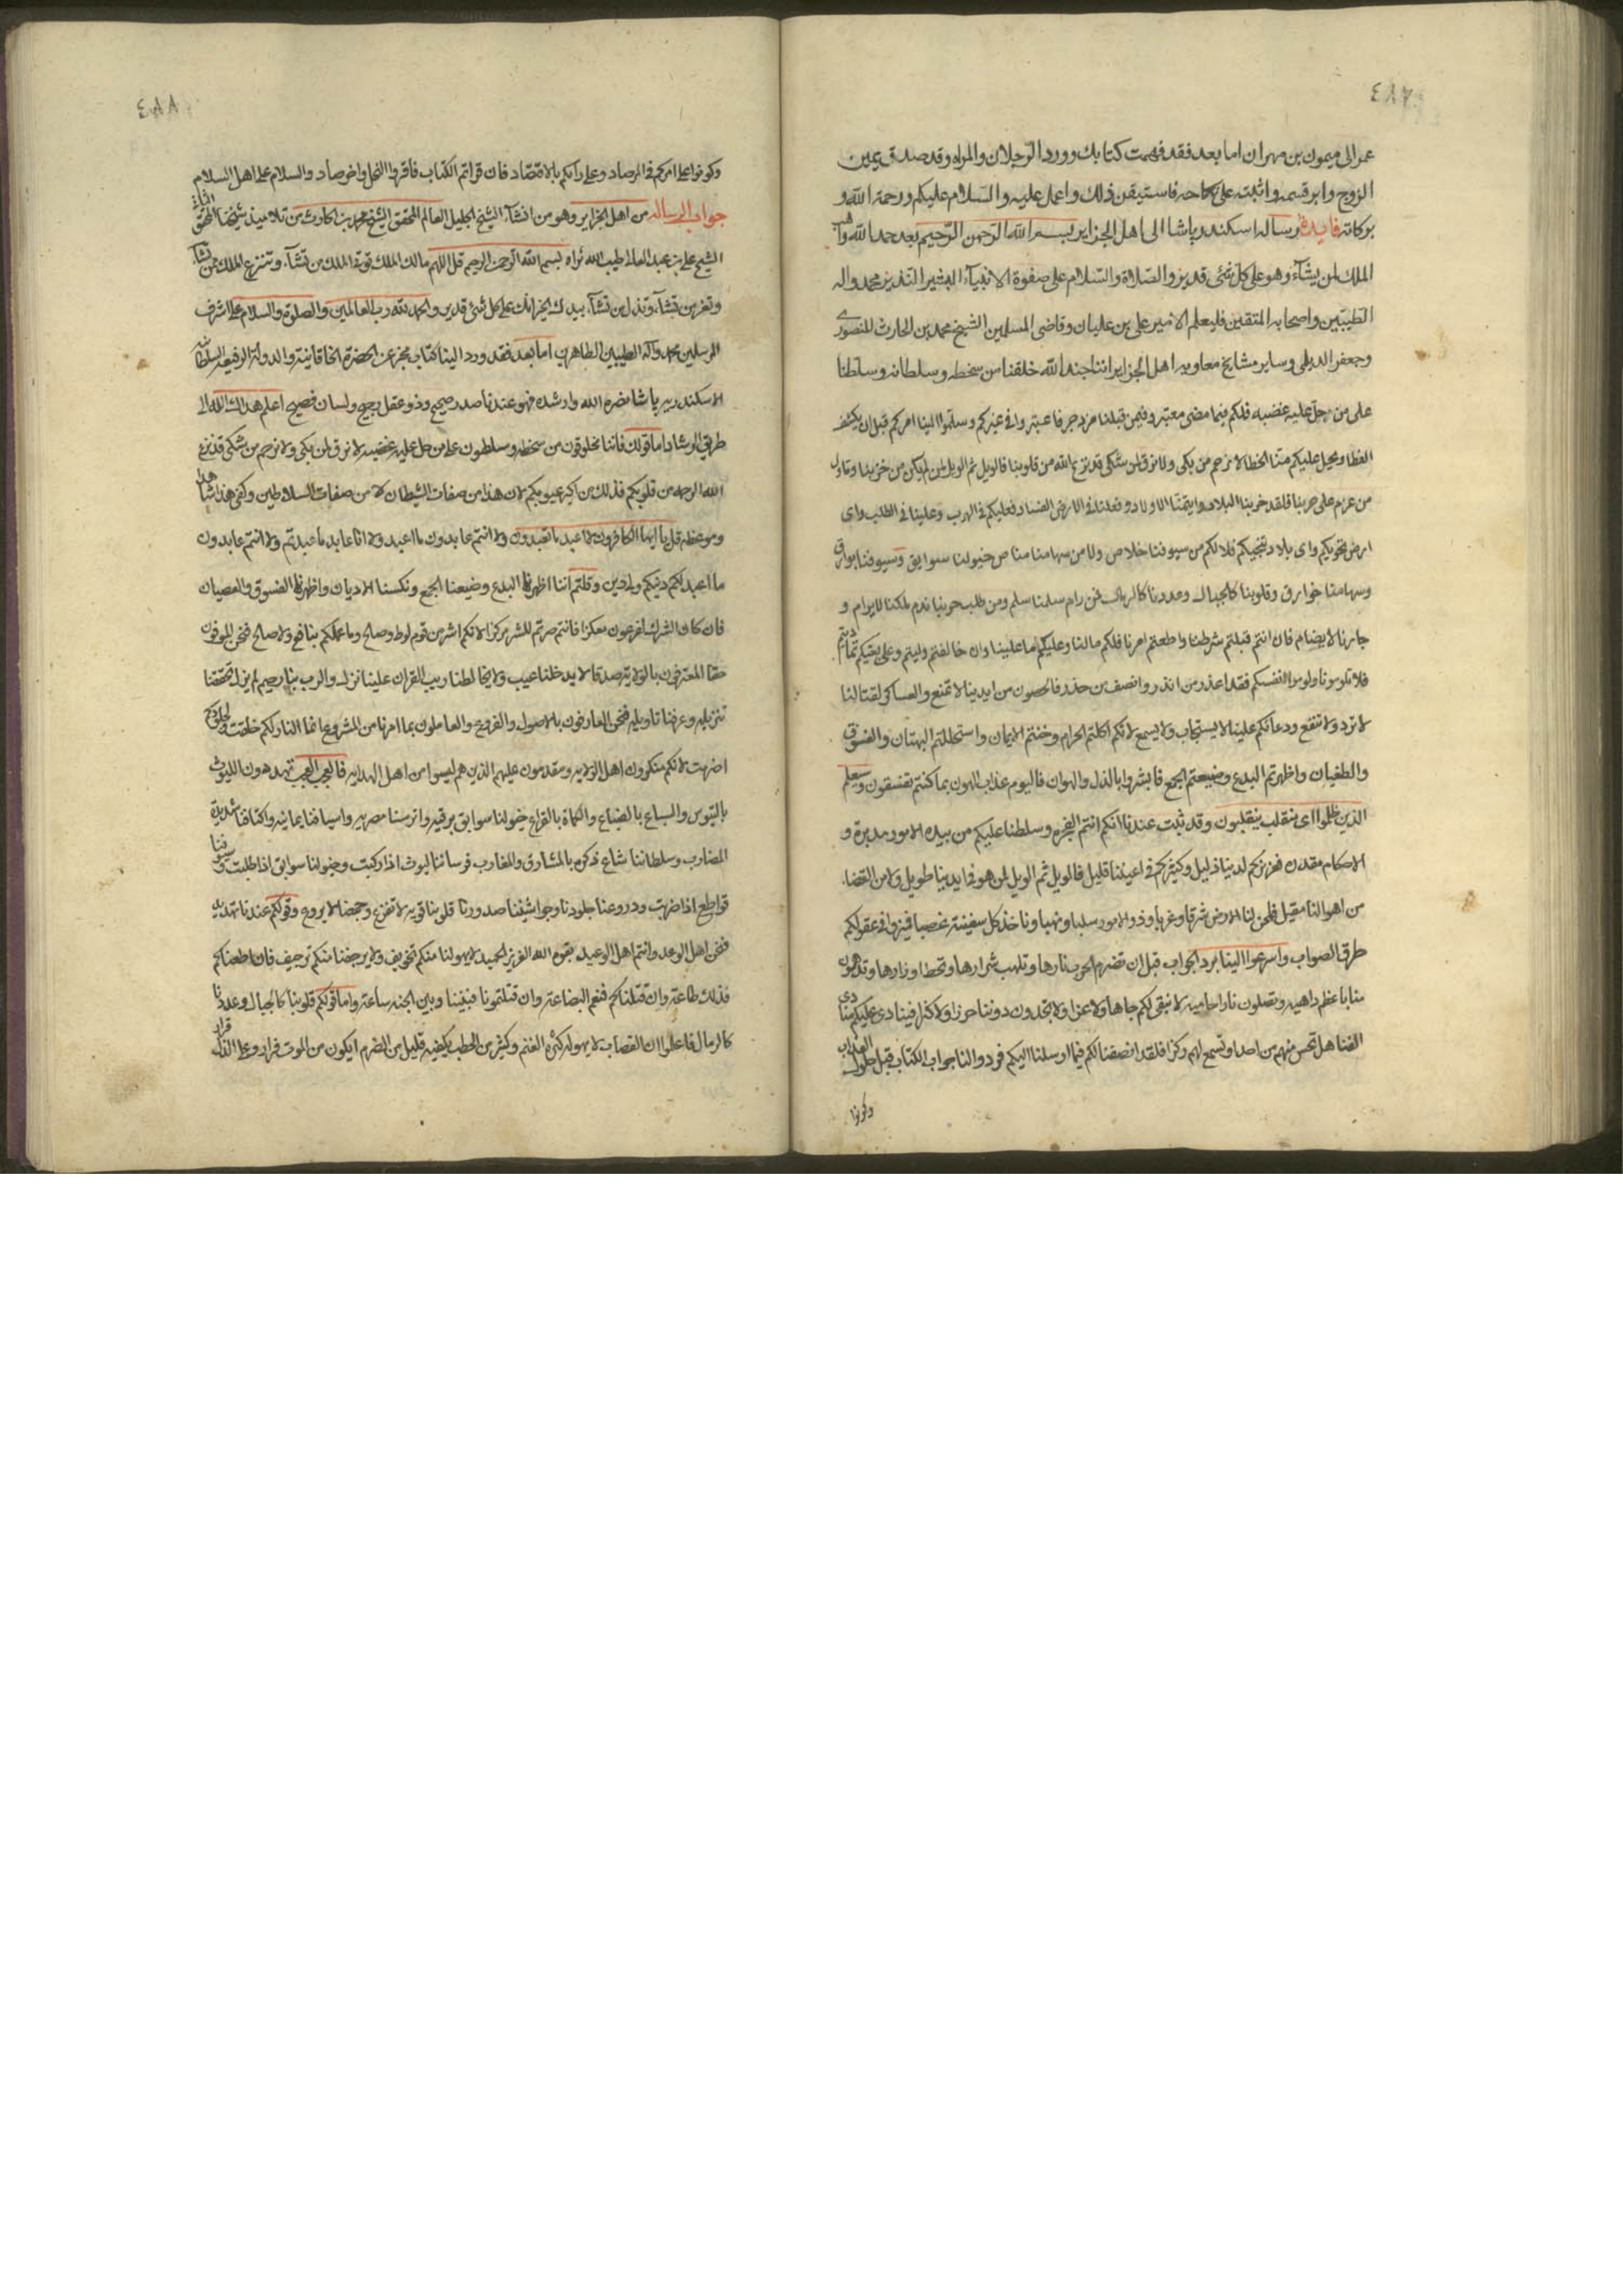 ٤٨٧
عمر الى ميمون بن مهران اما بعد فقد فهمت كتابك وورد الرجلان والمراه وقد صدق يمين
الزوج وابر قسمه واثبته على نكاحه فاستيقن ذلك واعمل عليه والسلام عليكم ورحمة الله و
بركاته فايدة رسالة اسكندر پاشا الى اهل الجزاير بسم الله الرحمن الرحيم بعد حمد الله واهب
الملك لمن يشآء وهو على كل شئ قدير والصلاة والسلام على صفوة الانبيآء البشير النذير محمد واله
الطيبين واصحابه المتقين فليعلم الامير على بن عليان وقاضى المسلمين الشيخ محمد بن الحارث المنصورى
وجعفر الديلمى وساير مشايخ معاويه اهل الجزاير اننا جند الله خلقنا من سخطه وسلطانه وسلطنا
على من حل عليه غضبه فلكم فيما مضى معتبر وفيمن قبلنا مزدجر فاعتبروا فى غيركم وسلموا الينا امركم قبل ان يكشف
الغطا ويحل عليكم منا الخطا لا نرحم من بكى ولا نرق لمن شكى قد نزع الله من قلوبنا فالويل ثم الويل لمن لم يكن من حزبنا وتاول
من عزم على حربنا فلقد خربنا البلاد وايتمنا الاولاد وفعلنا فى الارض الفساد فعليكم فى الهرب وعلينا فى الطلب واى
ارض تحويكم واى بلاد تنجيكم فلا لكم من سيوفنا خلاص ولا من سهامنا مناص خيولنا سوابق وسيوفنا بوارق
وسهامنا خوارق وقلوبنا كالجبال وعددنا كالرمال فمن رام سلمنا سلم ومن طلب حربنا ندم ملكنا لا يرام و
جارنا لا يضام فان انتم قبلتم شرطنا واطعتم امرنا فلكم مالنا وعليكم ما علينا وان خالفتم وابيتم وعلى بغيكم تماديتم
فلا تلومونا ولوموا انفسكم فقد اعذر من انذر وانصف من حذر فالحصون من ايدينا لا تمنع والعساكر لقتالنا
لا ترد ولا تنفع ودعائكم علينا لا يستجاب ولا يسمع لانكم اكلتم الحرام وخنتم الايمان واستحللتم البهتان والفسوق
والطغيان واظهرتم البدع وضيعتم الجمع فابشروا بالذل والهوان فاليوم عذاب الهون بما كنتم تفسقون وسيعلم
الذين ظلموا اى منقلب ينقلبون وقد ثبت عندنا انكم انتم الفجره وسلطنا عليكم من بيده الامور مدبرة و
الاحكام مقدره فعزيزكم لدينا ذليل وكثيركم فى اعيننا قليل فالويل ثم الويل لمن هو فى ايدينا طويل ولا من القضاء
من اهوالنا مقيل فنحن لنا الارض شرقا وغربا وذو الامور سلبا ونهبا وناخذ كل سفينة غصبا فميزوا فى عقولكم
طرق الصواب واسرعوا الينا برد الجواب قبل ان تضرم الحرب نارها وتلهب شرارها وتحط اوزارها وتدهون
منا باعظم داهيه وتصلون نارا حاميه لا نبقى لكم جاها ولا عزا ولا تجدون دوننا حرزا ولا كنزا فينادى عليكم منادى
الفنا هل تحس منهم من احد او تسمع لهم ركزا فلقد انصفنا لكم فيما ارسلنا اليكم فردوا لنا جواب الكتاب قبل حلول العذاب
وكونوا
٤٨٨
وكونوا على امركم فى المرصاد وعلى رايكم بالاقتصاد فان قراتم الكتاب فاقروا النحل واخر صاد والسلام على اهل السلام
جواب الرساله من اهل الجزاير وهو من انشآء الشيخ الجليل العالم المحقق الشيخ محمد بن الحارث من تلاميذ شيخنا المحقق الثانى
الشيخ على بن عبد العالى طيب الله ثراه بسم الله الرحمن الرحيم قل اللهم مالك الملك توتى الملك من تشآء وتنزع الملك ممن تشآء
وتعز من تشآء وتذل من تشآء بيدك الخير انك على كل شئ قدير والحمد لله رب العالمين والصلوة والسلام على اشرف
المرسلين محمد وآله الطيبين الطاهرين اما بعد فقد ورد الينا كتاب مخبر عن الحضرة الخاقانية والدولة الرفيعه السلطانيه
الاسكندريه پاشا نصره الله وارشده فهو عندنا صدر صحيح وذو عقل رجيح ولسان فصيح اعلم هداك الله الى
طريق الرشاد اما قولك فاننا مخلوقون من سخطه وسلطون على من حل عليه غضبه لا نرق لمن بكى ولا نرحم من شكى قد نزع
الله الرحمه من قلوبكم فذلك من اكبر عيوبكم لان هذا من صفات الشيطان لا من صفات السلاطين وكفى هذا شاهدا
وموعظه قل يا ايها الكافرون لا اعبد ما تعبدون ولا انتم عابدون ما اعبد ولا انا عابد ما عبدتم ولا انتم عابدون
ما اعبد لكم دينكم ولى دين وقلتم اننا اظهرنا البدع وضيعنا الجمع ونكسنا الاديان واظهرنا الفسوق والعصيان
فان كان الشرك لفرعون معكزا فانتم صرتم للشر مركزا لانكم اشر من قوم لوط وصالح وما عملكم بنافع ولا صالح فنحن المومنون
حقا المعترفون بالولاية صدقا لا يدخلنا عيب ولا يخالطنا ريب القران علينا نزل والرب بنا رحيم لم يزل تحققنا
تنزيله وعرفنا تاويله فنحن العارفون بالاصول والفروع والعاملون بما امرنا من المشروع انما النار لكم خلقت ولجلودكم
اضرمت لانكم منكرون اهل الولايه ومقدمون عليهم الذين هم ليسوا من اهل الهدايه فالعجب العجب تهددون الليوث
بالتيوس والسباع بالضباع والكماة بالقراع خيولنا سوابق برقيه واترسنا مصريه واسيافنا يمانيه واكتافنا شديدة
المضارب وسلطاننا شاع ذكره بالمشارق والمغارب فرساننا ليوث اذا ركبت وخيولنا سوابق اذا طلبت وسيوفنا
قواطع اذا ضربت ودروعنا جلودنا وجواشيننا صدورنا قلوبنا قويه لا تفزع وجمعنا لا يروع وقولكم عندنا تهديد
فنحن اهل الوعد وانتم اهل الوعيد بقوة الله العزيز الحميد لا يهولنا منكم تخويف ولا يرجفنا منكم ترجيف فان اطعناكم
فذلك طاعة وان قتلناكم فنعم البضاعة وان قتلتمونا فبيننا وبين الجنه ساعة واما قولكم قلوبنا كالجبال وعددنا
كالرمال فاعلموا ان القصاب لا يهوله كثرة الغنم وكثير من الحطب يكفيه قليل من الضرم ايكون من الموت فرار وعلى الذل قرار